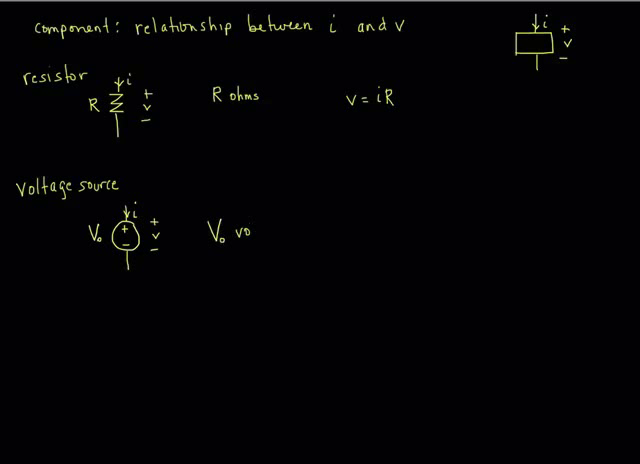 component: relationship between i and v
i
+
v
−
resistor
i
R
+
v
−
R ohms
v = iR
voltage source
i
V₀
+
−
+
v
−
V₀ vo